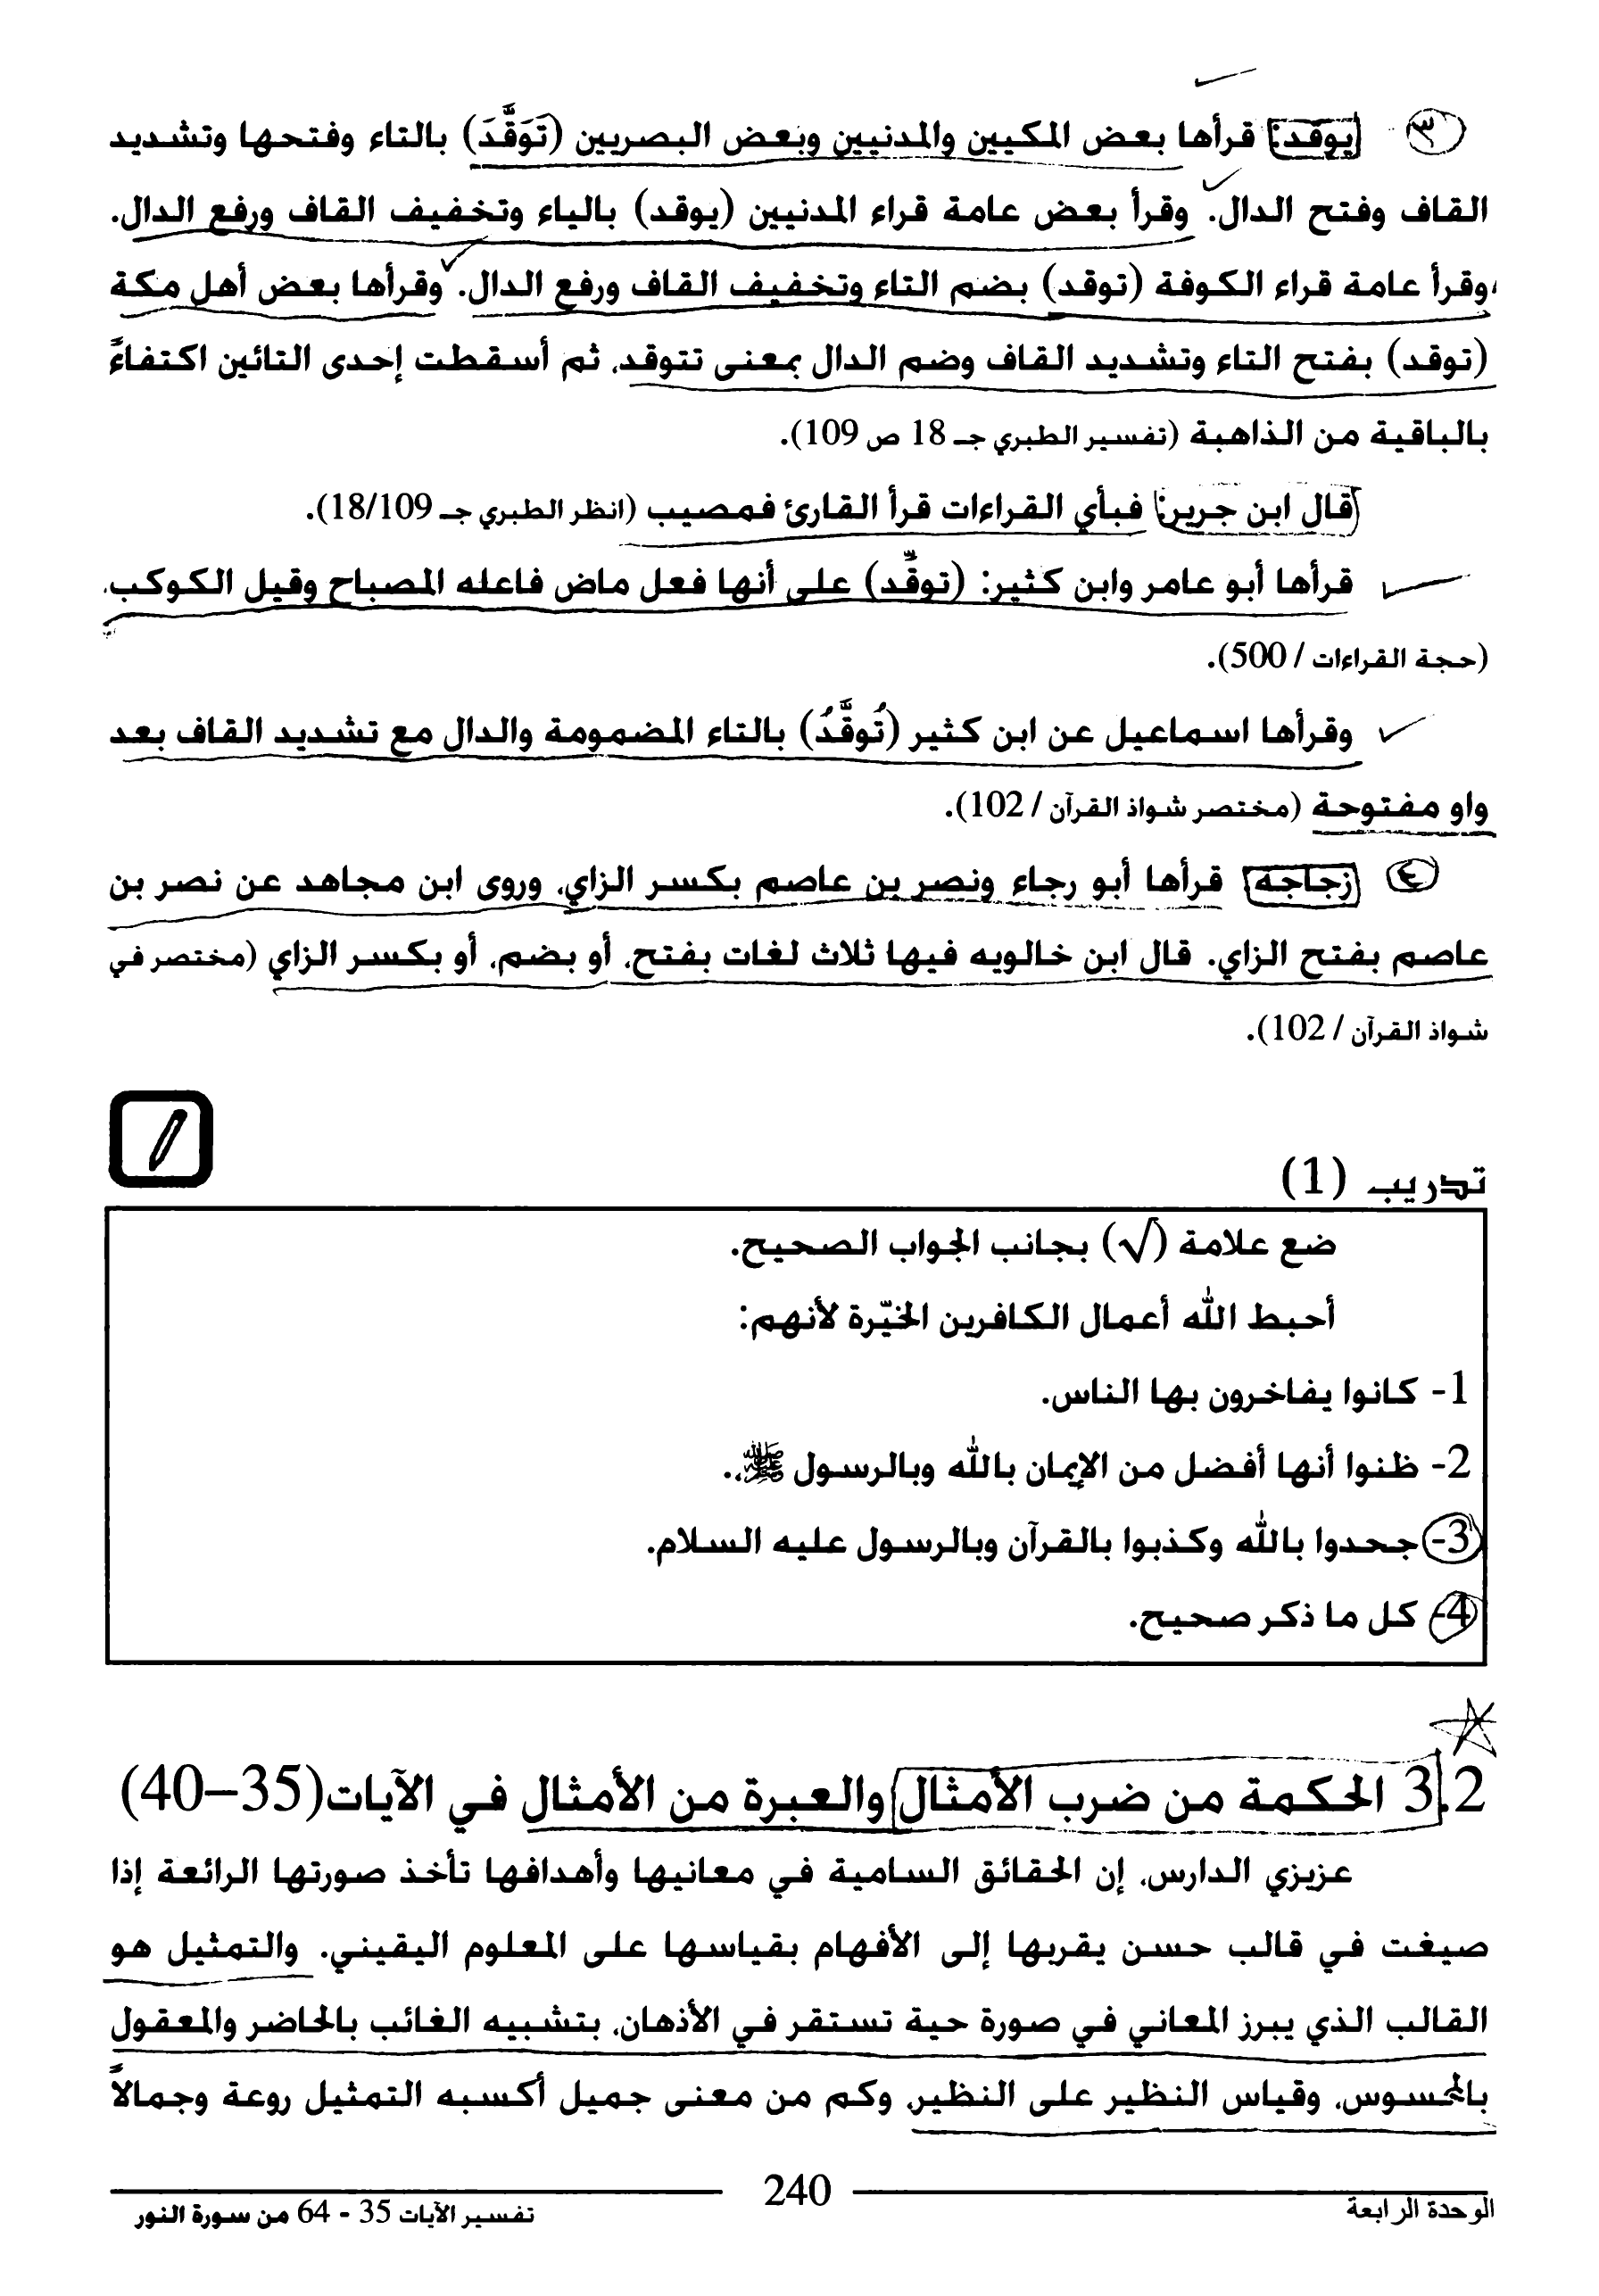 ٣ (يوقد): قرأها بعض المكيين والمدنيين وبعض البصريين (تَوَقَّدَ) بالتاء وفتحها وتشديد
القاف وفتح الدال. وقرأ بعض عامة قراء المدنيين (يوقد) بالياء وتخفيف القاف ورفع الدال.
وقرأ عامة قراء الكوفة (توقد) بضم التاء وتخفيف القاف ورفع الدال. وقرأها بعض أهل مكة
(توقد) بفتح التاء وتشديد القاف وضم الدال بمعنى تتوقد، ثم أسقطت إحدى التائين اكتفاءً
بالباقية من الذاهبة (تفسير الطبري جـ 18 ص 109).
قال ابن جرير: فبأي القراءات قرأ القارئ فمصيب (انظر الطبري جـ 18/109).
قرأها أبو عامر وابن كثير: (توقّد) على أنها فعل ماض فاعله المصباح وقيل الكوكب.
(حجة القراءات / 500).
وقرأها اسماعيل عن ابن كثير (تُوقَّدُ) بالتاء المضمومة والدال مع تشديد القاف بعد
واو مفتوحة (مختصر شواذ القرآن / 102).
٤ (زجاجة) قرأها أبو رجاء ونصر بن عاصم بكسر الزاي، وروى ابن مجاهد عن نصر بن
عاصم بفتح الزاي. قال ابن خالويه فيها ثلاث لغات بفتح، أو بضم، أو بكسر الزاي (مختصر في
شواذ القرآن / 102).
تدريب (1)
ضع علامة (√) بجانب الجواب الصحيح.
أحبط الله أعمال الكافرين الخيّرة لأنهم:
1- كانوا يفاخرون بها الناس.
2- ظنوا أنها أفضل من الإيمان بالله وبالرسول ﷺ.
3- جحدوا بالله وكذبوا بالقرآن وبالرسول عليه السلام.
4- كل ما ذكر صحيح.
3.2 الحكمة من ضرب الأمثال والعبرة من الأمثال في الآيات(35–40)
عزيزي الدارس، إن الحقائق السامية في معانيها وأهدافها تأخذ صورتها الرائعة إذا
صيغت في قالب حسن يقربها إلى الأفهام بقياسها على المعلوم اليقيني. والتمثيل هو
القالب الذي يبرز المعاني في صورة حية تستقر في الأذهان، بتشبيه الغائب بالحاضر والمعقول
بالمحسوس، وقياس النظير على النظير، وكم من معنى جميل أكسبه التمثيل روعة وجمالاً
الوحدة الرابعة 240 تفسير الآيات 35 - 64 من سورة النور